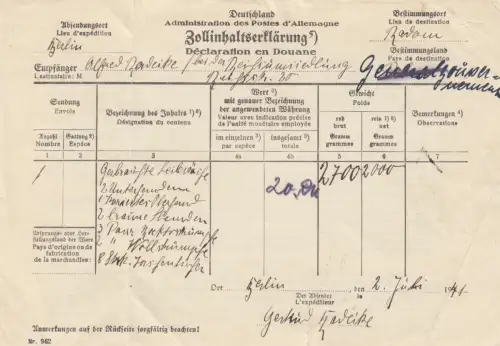 Deutschland
Administration des Postes d'Allemagne
Zollinhaltserklärung ⁵)
Déclaration en Douane
Absendungsort
Lieu d'expédition
Berlin
Bestimmungsort
Lieu de destination
Radom
Bestimmungsland
Pays de destination
Generalgouver-
nement
Empfänger
Destinataire: M
Alfred Radeike / bei der
Sendung
Envois
Anzahl
Nombre
Gattung ²)
Espèce
Bezeichnung des Inhalts ¹) ⁶)
Désignation du contenu
Wert ³)
mit genauer Bezeichnung
der angewendeten Währung
Valeur avec indication précise
de l'unité monétaire employée
im einzelnen ³)
par espèce
insgesamt ³)
totale
Gewicht
Poids
roh
brut
Gramm
grammes
rein ¹) ⁶)
net
Gramm
grammes
Bemerkungen ⁴)
Observations
1 2 3 4a 4b 5 6 7
1
Gebrauchte Leibwäsche
2 Unterhemden
2 braune Hemden
3 Paar
2 " Wollstrümpfe
8 Stck. Taschentücher
20,
2700
2000
Ursprungs- oder Her-
stellungsland der Ware
Pays d'origine ou de
fabrication
de la marchandise:
Der
Berlin
, den
2. Juli 1941
Der Absender
L'expéditeur
Gertrud Radeike
Anmerkungen auf der Rückseite sorgfältig beachten!
Nr. 962